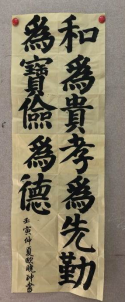 和為貴孝為先勤
為寶儉為德
寅仲夏 書